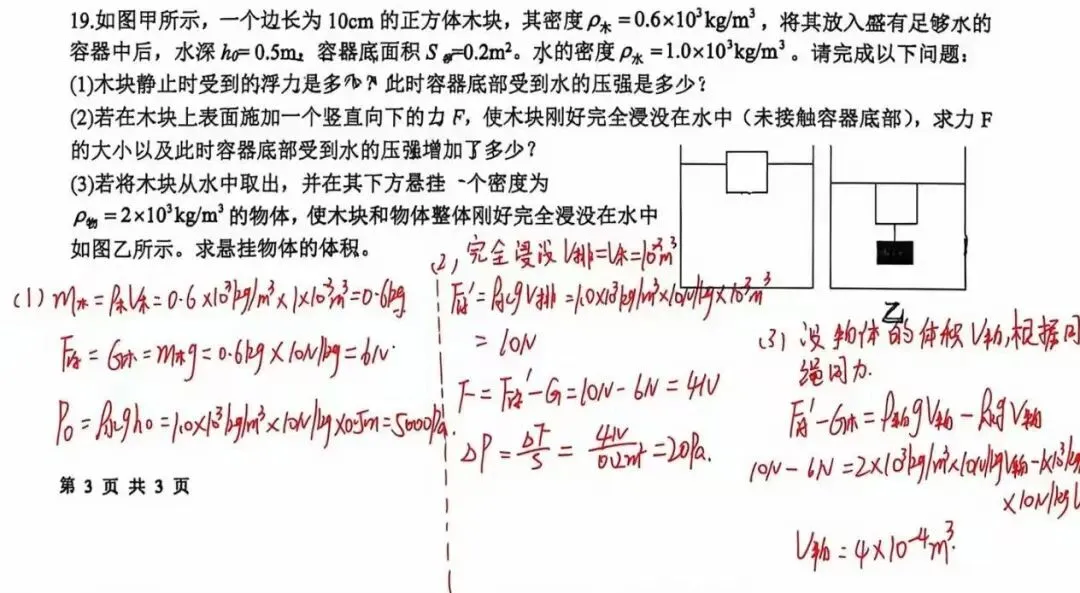 19.如图甲所示，一个边长为10cm的正方体木块，其密度ρ木=0.6×10³kg/m³，将其放入盛有足够水的
容器中后，水深h₀=0.5m，容器底面积S容=0.2m²。水的密度ρ水=1.0×10³kg/m³。请完成以下问题：
(1)木块静止时受到的浮力是多少？此时容器底部受到水的压强是多少？
(2)若在木块上表面施加一个竖直向下的力F，使木块刚好完全浸没在水中（未接触容器底部），求力F
的大小以及此时容器底部受到水的压强增加了多少？
(3)若将木块从水中取出，并在其下方悬挂一个密度为
ρ物=2×10³kg/m³的物体，使木块和物体整体刚好完全浸没在水中
如图乙所示。求悬挂物体的体积。
乙
(1) m木=ρ木V木=0.6×10³kg/m³×1×10⁻³m³=0.6kg
F浮=G木=m木g=0.6kg×10N/kg=6N.
P₀=ρ水gh₀=1.0×10³kg/m³×10N/kg×0.5m=5000Pa.
(2, 完全浸没 V排=V木=10⁻³m³
F浮'=ρ水gV排=1.0×10³kg/m³×10N/kg×10⁻³m³
=10N
F=F浮'-G=10N-6N=4N
ΔP=ΔF/S=4N/0.2m²=20Pa.
(3) 设物体的体积V物,根据同
绳同力.
F浮'-G木=ρ物gV物-ρ水gV物
10N-6N=2×10³kg/m³×10N/kgV物-1×10³kg
×10N/kgV
V物=4×10⁻⁴m³.
第 3 页 共 3 页